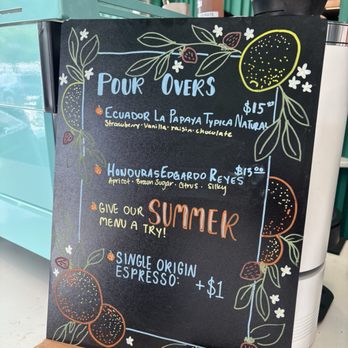 POUR OVERS
ECUADOR LA PAPAYA TYPICA NATURAL $15.00
Strawberry · Vanilla · raisin · chocolate
HONDURAS EDGARDO REYES $13.00
Apricot · Brown Sugar · Citrus · Silky
GIVE OUR SUMMER
MENU A TRY!
SINGLE ORIGIN
ESPRESSO: +$1